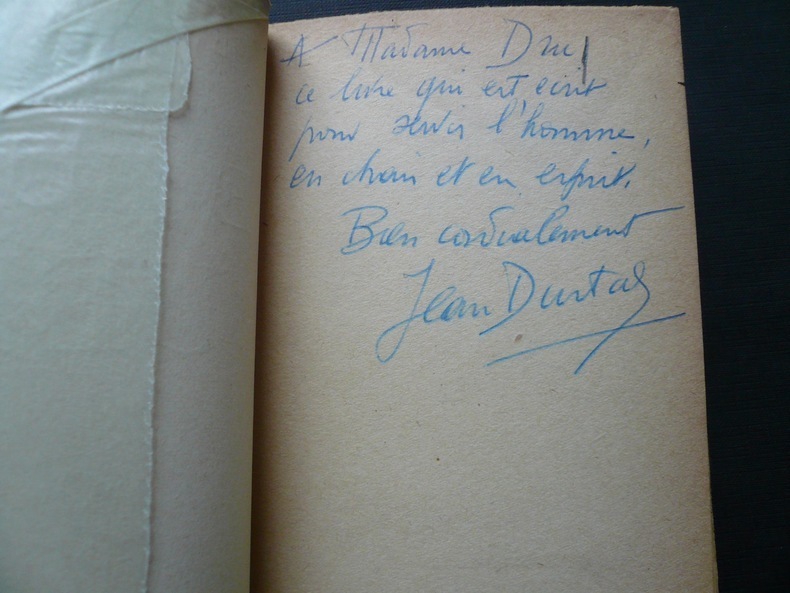 A Madame Dru
ce livre qui est écrit
pour servir l'homme,
en chair et en esprit.
Bien cordialement
Jean Durtal